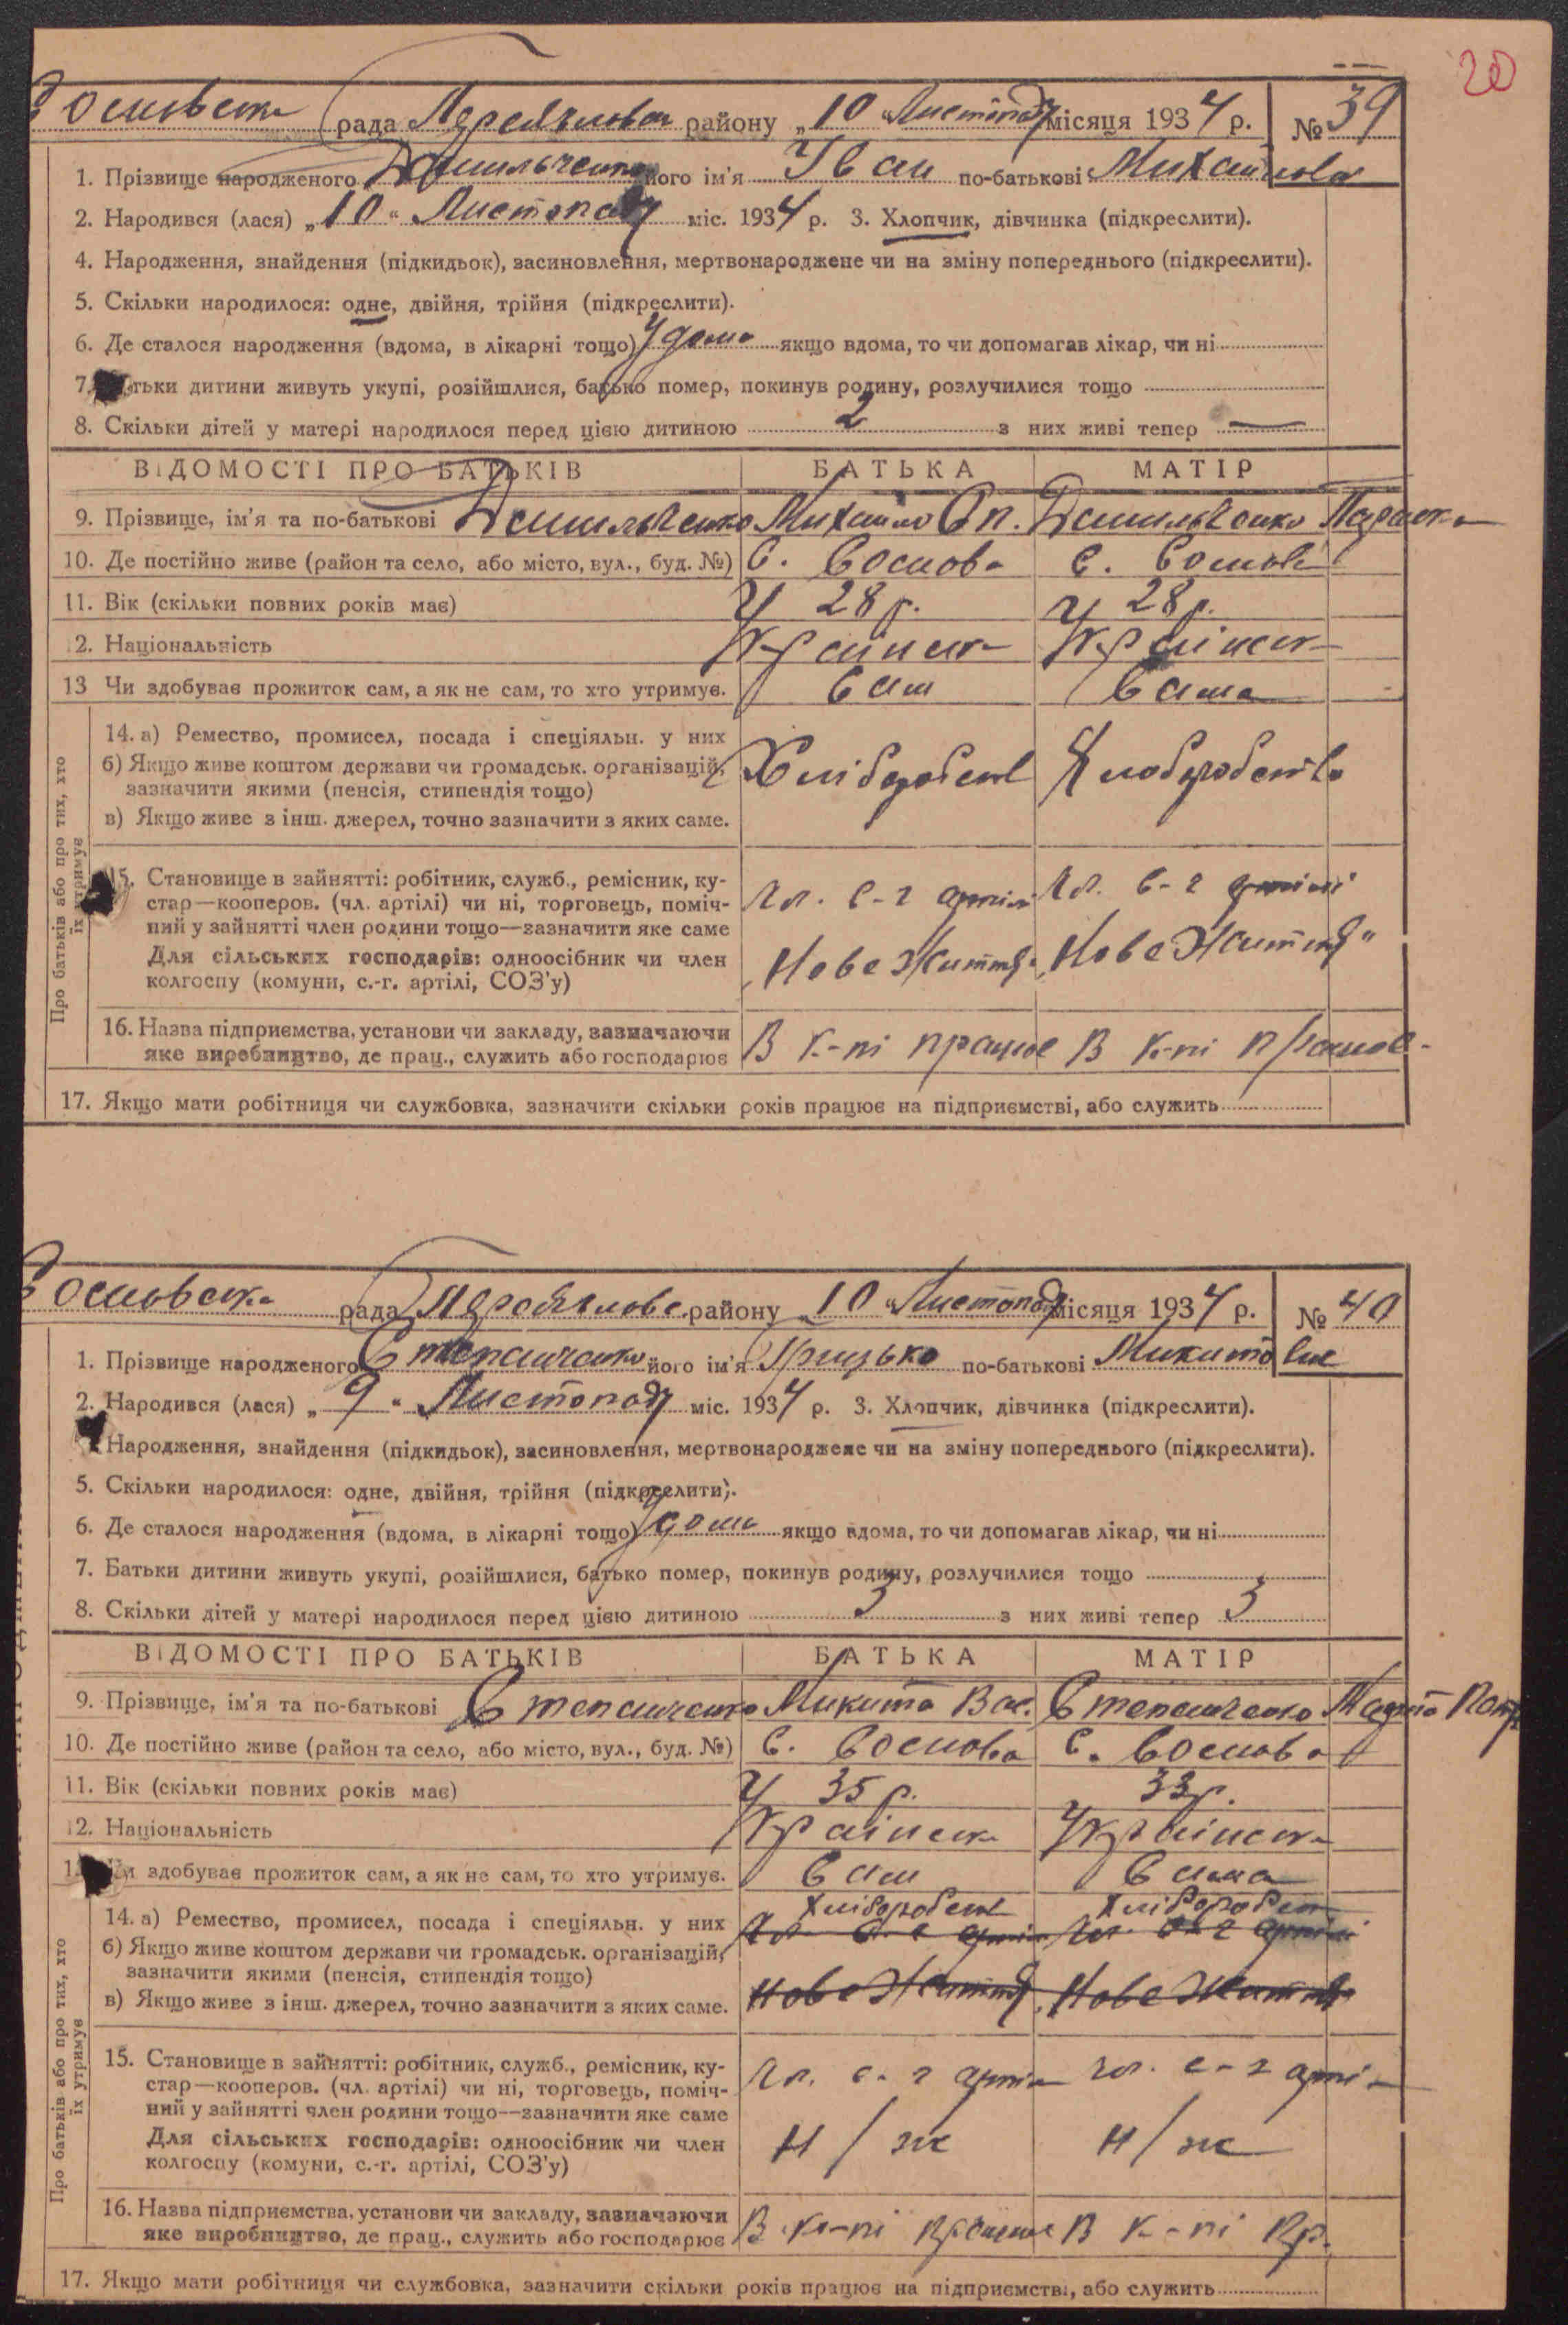 20
Сосновська рада Переяславск району „10 Листопаду місяця 1934 р. № 39
1. Прізвище народженого Данильченко його ім'я Іван по-батькові Михайлов
2. Народився (лася) „10" Листопаду міс. 1934 р. 3. Хлопчик, дівчинка (підкреслити).
4. Народження, знайдення (підкидьок), засиновлення, мертвонароджене чи на зміну попереднього (підкреслити).
5. Скільки народилося: одне, двійня, трійня (підкреслити).
6. Де сталося народження (вдома, в лікарні тощо) Удома якщо вдома, то чи допомагав лікар, чи ні
7. тьки дитини живуть укупі, розійшлися, батько помер, покинув родину, розлучилися тощо
8. Скільки дітей у матері народилося перед цією дитиною 2 з них живі тепер —
ВІДОМОСТІ ПРО БАТЬКІВ БАТЬКА МАТІР
9. Прізвище, ім'я та по-батькові Данильченко Михайло Оп. Данильченко Параска
10. Де постійно живе (район та село, або місто, вул., буд. №) С. Соснова С. Соснова
11. Вік (скільки повних років має) 28 р. 28 р.
12. Національність Українськ Українськ
13 Чи здобуває прожиток сам, а як не сам, то хто утримує. Сам Сама
Про батьків або про тих, хто їх утримує
14. а) Ремество, промисел, посада і спеціяльн. у них
б) Якщо живе коштом держави чи громадськ. організацій, зазначити якими (пенсія, стипендія тощо) Хліборобств Хлоборобство
в) Якщо живе з інш. джерел, точно зазначити з яких саме.
15. Становище в зайнятті: робітник, служб., ремісник, ку-
стар—кооперов. (чл. артілі) чи ні, торговець, поміч- Чл. с-г артілі Чл. с-г артілі
ний у зайнятті член родини тощо—зазначити яке саме
Для сільських господарів: одноосібник чи член „Нове Життя" „Нове Життя"
колгоспу (комуни, с.-г. артілі, СОЗ'у)
16. Назва підприємства, установи чи закладу, зазначаючи В к-пі працює В к-пі працює
яке виробництво, де прац., служить або господарює
17. Якщо мати робітниця чи службовка, зазначити скільки років працює на підприємстві, або служить
Сосновська рада Переяславс. району „10" Листопаду місяця 1934 р. № 40
1. Прізвище народженого Степанченко його ім'я Грицько по-батькові Микитович
2. Народився (лася) „9" Листопаду міс. 1934 р. 3. Хлопчик, дівчинка (підкреслити).
Народження, знайдення (підкидьок), засиновлення, мертвонароджене чи на зміну попереднього (підкреслити).
5. Скільки народилося: одне, двійня, трійня (підкреслити).
6. Де сталося народження (вдома, в лікарні тощо) Удома якщо вдома, то чи допомагав лікар, чи ні
7. Батьки дитини живуть укупі, розійшлися, батько помер, покинув родину, розлучилися тощо
8. Скільки дітей у матері народилося перед цією дитиною 3 з них живі тепер 3
ВІДОМОСТІ ПРО БАТЬКІВ БАТЬКА МАТІР
9. Прізвище, ім'я та по-батькові Степанченко Микита Вас. Степанченко Марта Петр
10. Де постійно живе (район та село, або місто, вул., буд. №) С. Соснова С. Соснова
11. Вік (скільки повних років має) 35 р. 33 р.
12. Національність Українськ Українськ
Чи здобуває прожиток сам, а як не сам, то хто утримує. Сам Сама
Про батьків або про тих, хто їх утримує
Хліборобств Хліборобст
14. а) Ремество, промисел, посада і спеціяльн. у них Чл. с-г артіл Чл. с-г артілі
б) Якщо живе коштом держави чи громадськ. організацій,
зазначити якими (пенсія, стипендія тощо) Нове Життя „Нове Життя
в) Якщо живе з інш. джерел, точно зазначити з яких саме.
15. Становище в зайнятті: робітник, служб., ремісник, ку-
стар—кооперов. (чл. артілі) чи ні, торговець, поміч- Чл. с-г артіл чл. с-г артіл
ний у зайнятті член родини тощо—зазначити яке саме
Для сільських господарів: одноосібник чи член Н/ж Н/ж
колгоспу (комуни, с.-г. артілі, СОЗ'у)
16. Назва підприємства, установи чи закладу, зазначаючи В к-пі працює В к-пі пр.
яке виробництво, де прац., служить або господарює
17. Якщо мати робітниця чи службовка, зазначити скільки років працює на підприємстві, або служить